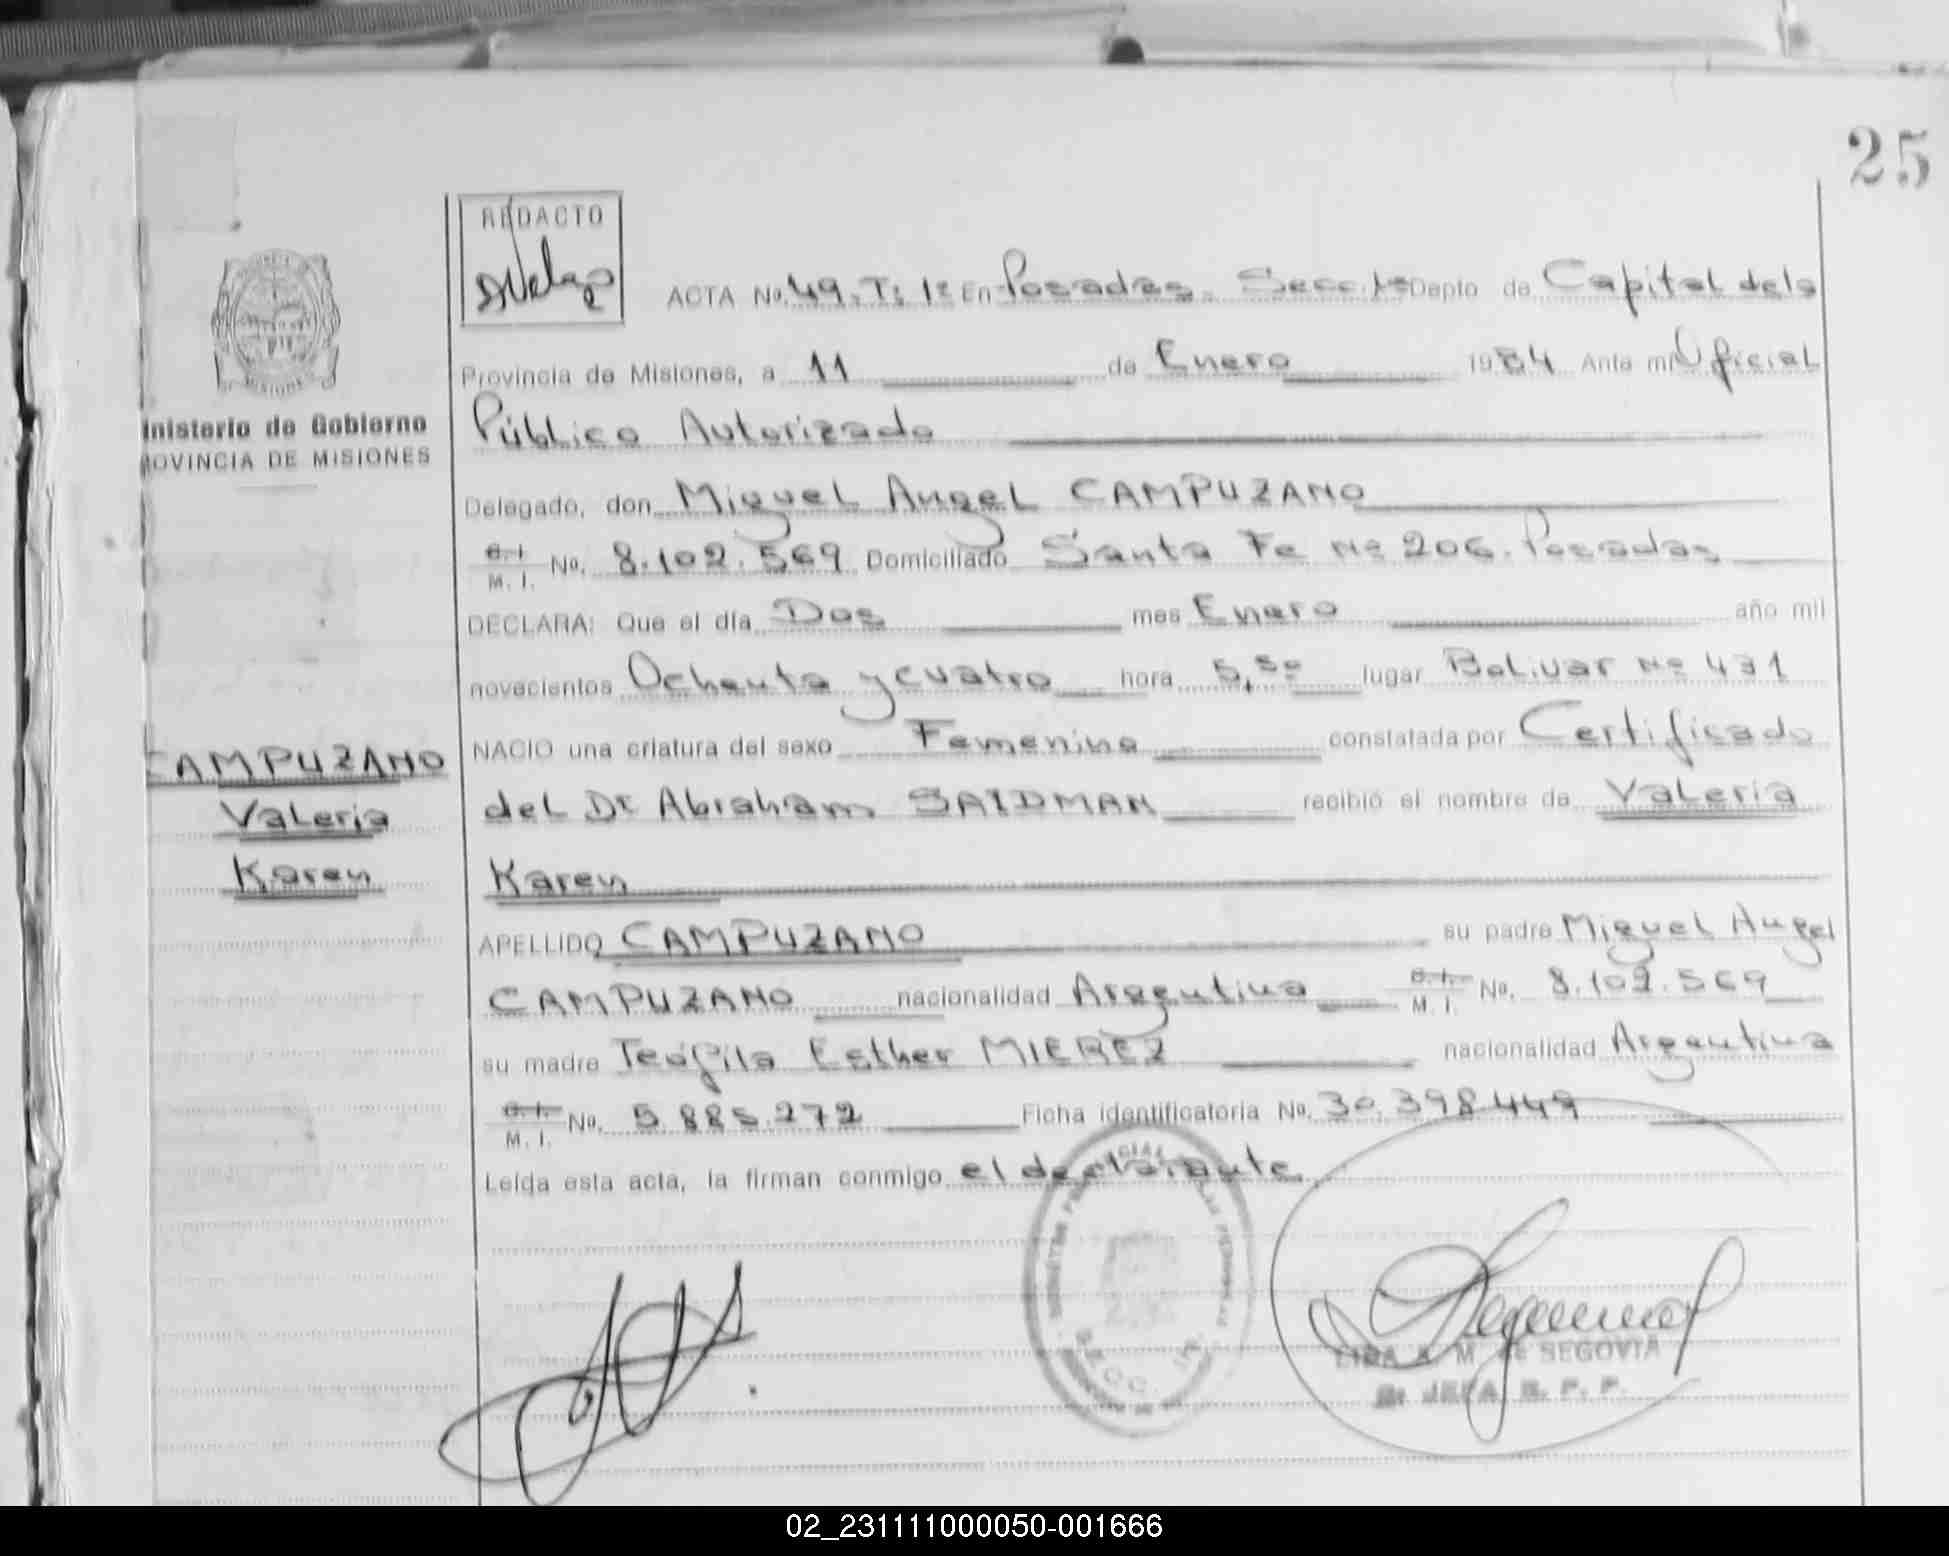 25
REDACTO
ACTA No. 49. T: 1º En Posadas. Secc. 1ª Depto de Capital de la
Provincia de Misiones, a 11 de Enero 1984 Ante mi Oficial
Público Autorizado
Delegado, don Miguel Angel CAMPUZANO
C.I. M. I. No. 8.102.569 Domiciliado Santa Fe Nº 206. Posadas
DECLARA: Que el día Dos mes Enero año mil
novecientos Ochenta y cuatro hora 5,50 lugar Bolivar Nº 431
NACIO una criatura del sexo Femenino constatada por Certificado
del Dr Abraham SAIDMAN recibió el nombre de Valeria
Karen
APELLIDO CAMPUZANO su padre Miguel Angel
CAMPUZANO nacionalidad Argentina C.I. M. I. No. 8.102.569
su madre Teófila Esther MIEREZ nacionalidad Argentina
C.I. M. I. No. 5.885.272 Ficha identificatoria No. 30.398.449
Leída esta acta, la firman conmigo el declarante.
inisterio de Gobierno
ROVINCIA DE MISIONES
CAMPUZANO
Valeria
Karen
A. M. de SEGOVIA
JEFA R. P. P.
SECC. 1ª
02_231111000050-001666